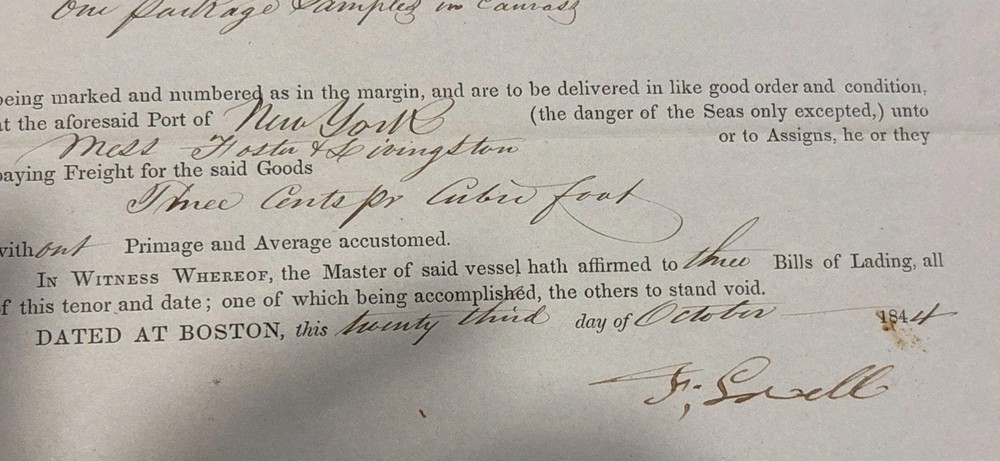 One package Samples in Canvass
being marked and numbered as in the margin, and are to be delivered in like good order and condition,
at the aforesaid Port of New York (the danger of the Seas only excepted,) unto
Mess Foster & Livingston or to Assigns, he or they
paying Freight for the said Goods
Three Cents pr Cubic foot
without Primage and Average accustomed.
IN WITNESS WHEREOF, the Master of said vessel hath affirmed to three Bills of Lading, all
of this tenor and date; one of which being accomplished, the others to stand void.
DATED AT BOSTON, this twenty third day of October 1844
F. Lovell